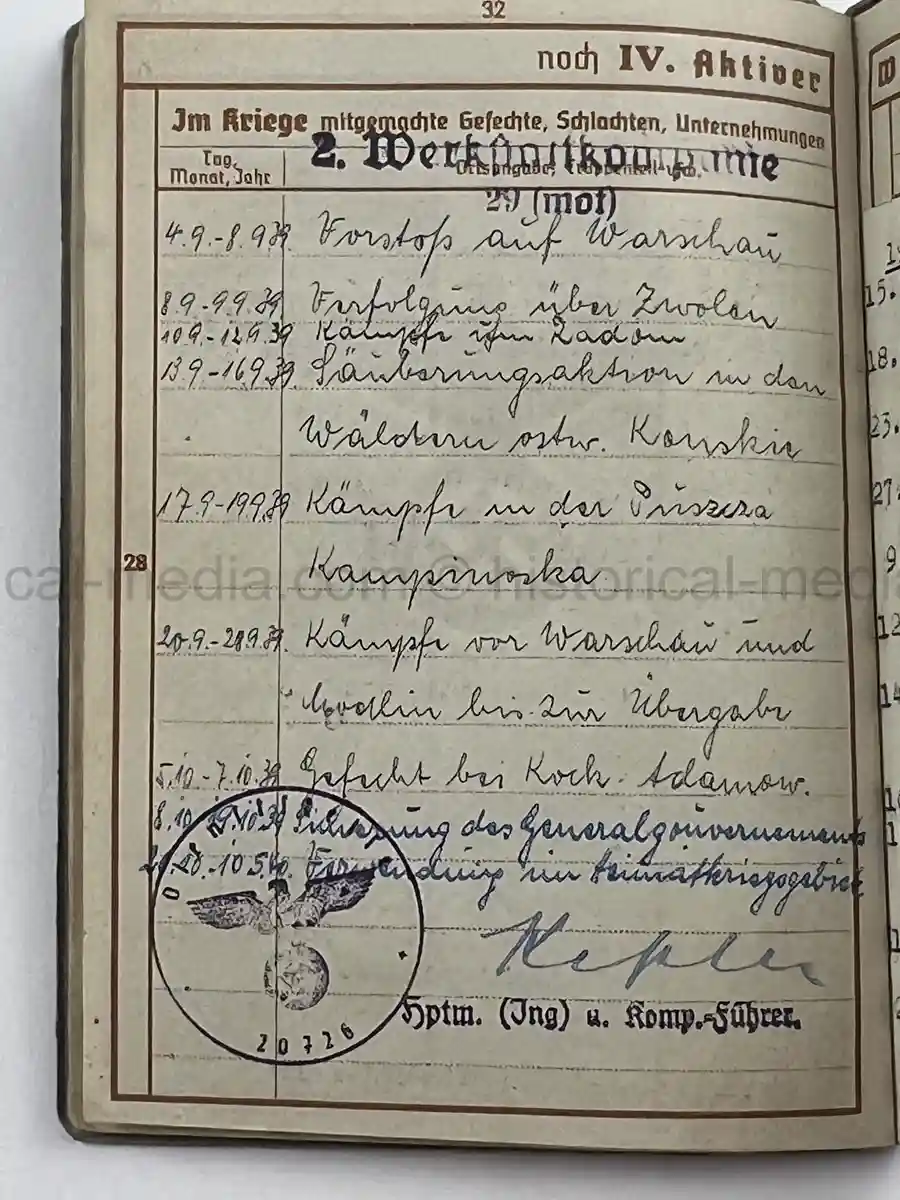 32
noch IV. Aktiver
Im Kriege mitgemachte Gefechte, Schlachten, Unternehmungen
Tag, Monat, Jahr
2. Werkstattkompanie
29 (mot)
4.9.-8.9.39 Vorstoß auf Warschau
8.9.-9.9.39 Verfolgung über Zwolen
10.9.-12.9.39 Kämpfe um Radom
13.9-16.9.39 Säuberungsaktion in den
Wäldern ostw. Konskie
17.9-19.9.39 Kämpfe in der Puszcza
28
Kampinoska
20.9.-28.9.39. Kämpfe vor Warschau und
Modlin bis zur Übergabe
5.10.-7.10.39 Gefecht bei Kock. Adamow.
8.10. 19.10.39 Sicherung des Generalgouvernements
10.5.40. Verwendung im Heimatkriegsgebiet
Hptm. (Ing) u. Komp.-Führer.
20726
cal-media.com © historical-med